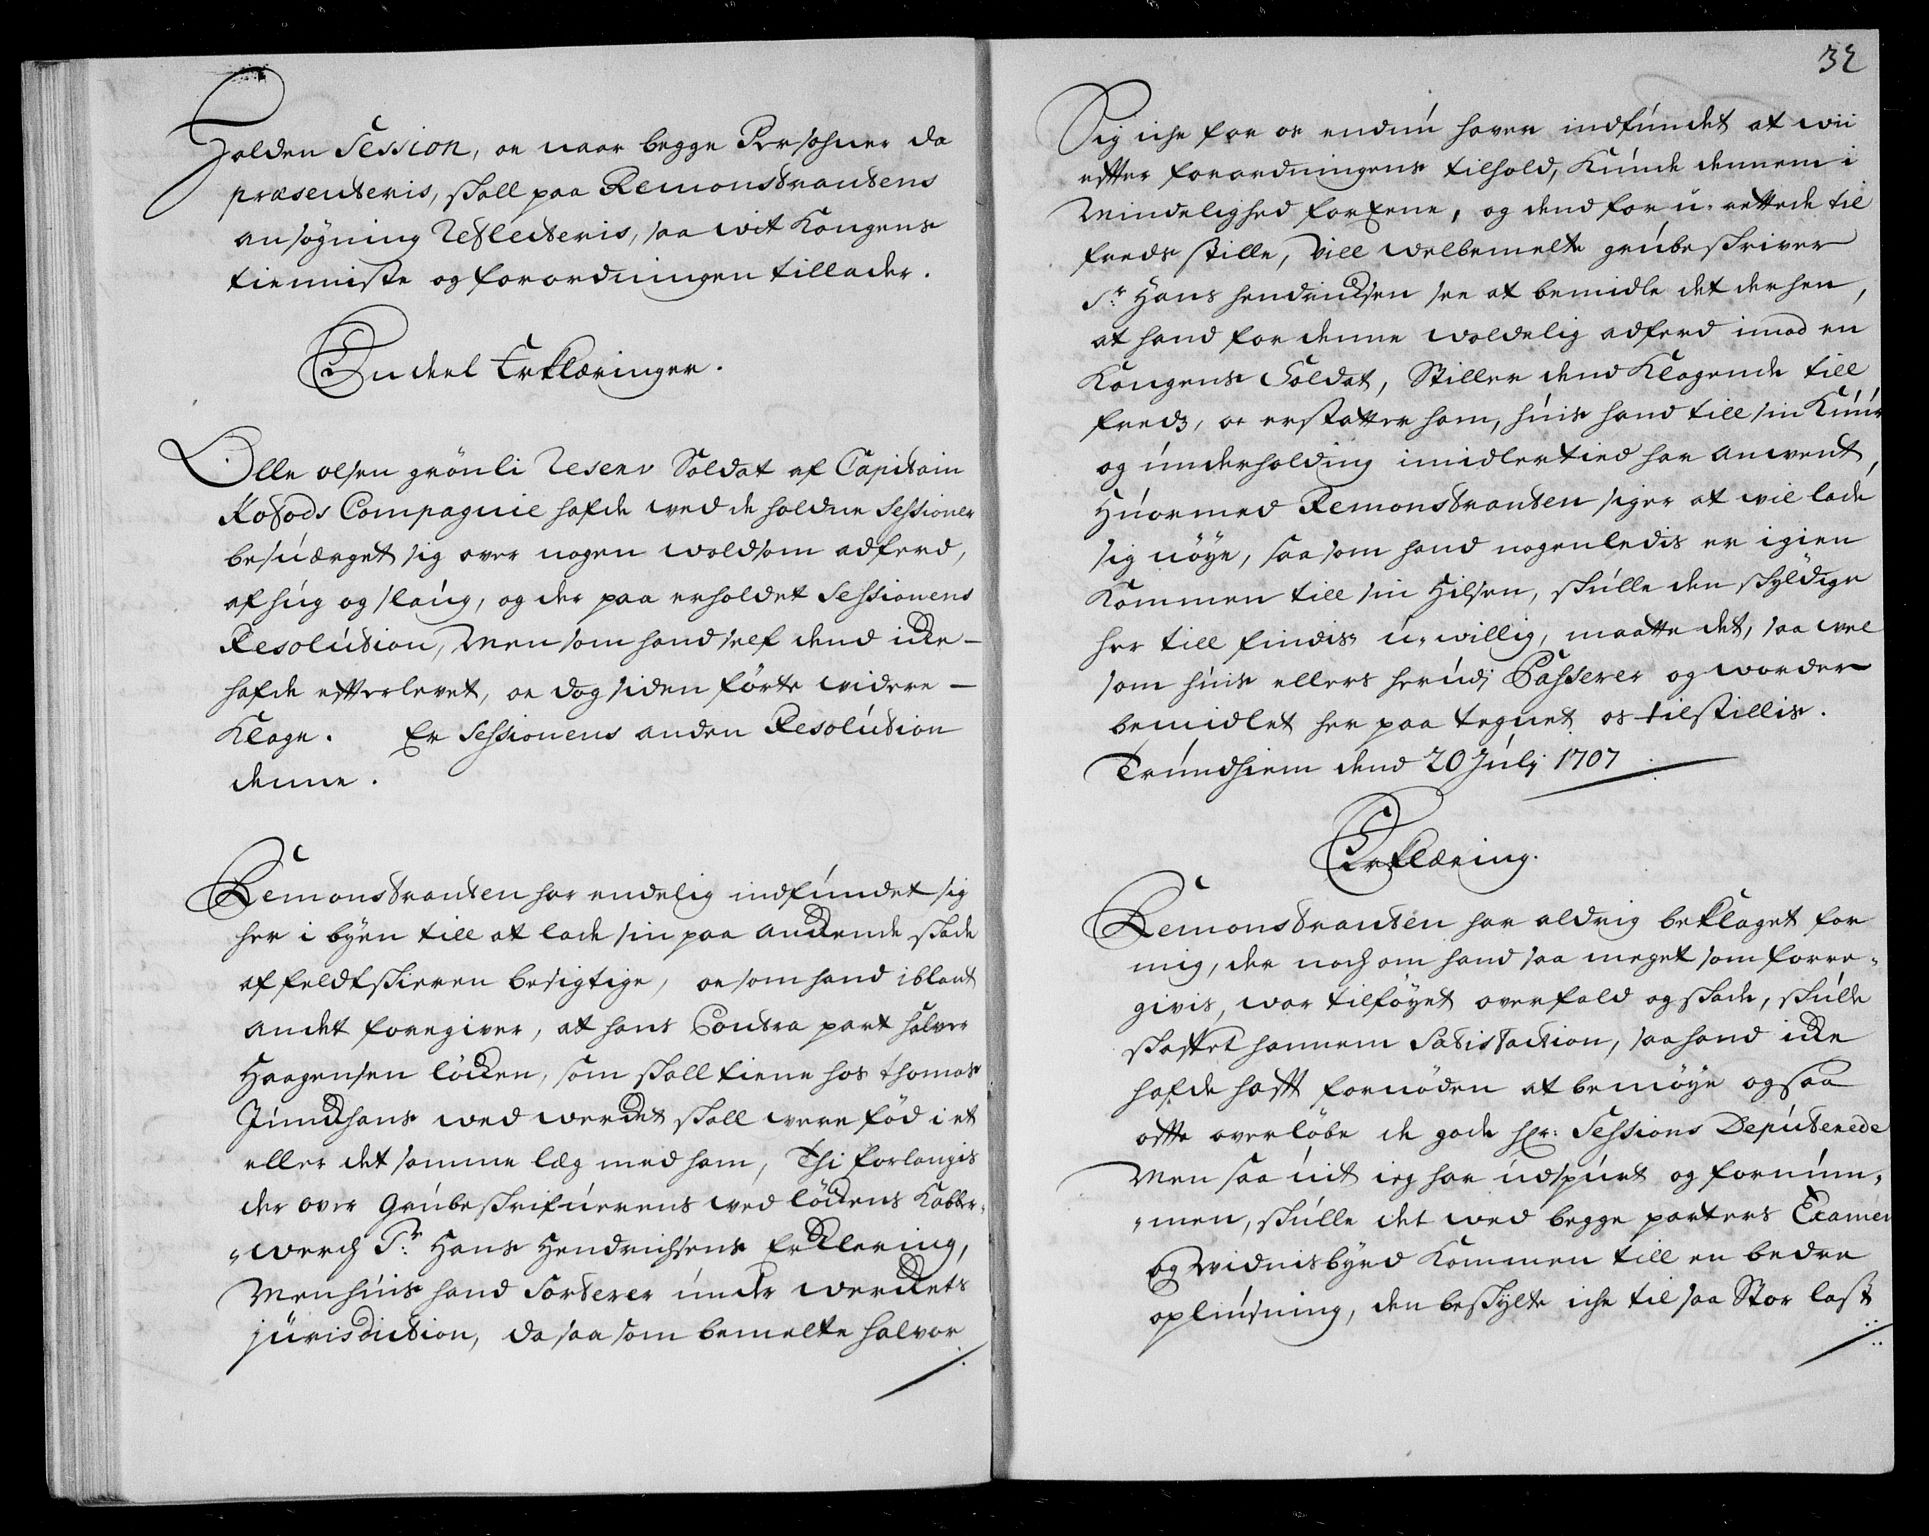 holden Session, oc naar begge Persohner da
præsenteris, skall paa Remonstrantens
ansögning reflecteris, saa vit Kongens
tienniste og forordningen tillader.
Endeel Erklæringer.
Olle olsen grönli Reserv Soldat af Capitain
Kofods Compagnie hafde ved de holdne Sessioner
besuærget sig over nogen woldsom adferd,
af hug og slaug, og der paa erholdet Sessionens
Resolution, Men som hand self dend icke
hafde etterlevet, oc dog siden förte videre
Klage. Er Sessionens anden Resolution
denne.
Remonstranten har endelig indfundet sig
her i byen till at lade sin paa anckende skade
af feldtskieren besigtige, oc som hand iblant
andet foregiver, at hans Contra part halver
Haagensen löcken, som skall tiene hos thomas
Junckhans ved wercket skall vere föd i et
eller det samme læg med ham, Thi forlangis
der over Grubeskrifuerens ved löckens Kobber„
„werch Sr: Hans Hendrichsens Erklering,
Men huis hand Sorterer under werckets
jurisdiction, da saa som bemelte halvor
32
Sig iche for os endnu haver indfundet at vii
etter forordningens tilhold, Kunde dennem i
Mindelighed forEene, og dend for u-rettede til
freds stille, vill welbemelte grubeskriver
Sr: Hans hendrichsen see at bemidle det derhen,
at hand for denne woldelig adferd imod en
Kongens Soldat, Stiller dend Klagende till
fredz, oc erstatter ham, huis hand till sin Kuur
og underholding imidlertied har anvent,
Huormed Remonstranten siger at vil lade
sig nöye, saa som hand nogenledis er igien
Kommen till sin Hilsen, skulle den skyldige
her till findis u-willig, maatte det, saa vel
som huis ellers herudj Passerer og vorder
bemidlet her paa tegnet os tilstillis.
Trundhiem dend 20 Julj 1707
Erklæring.
Remonstranten har aldrig beklaget for
mig, der noch om hand saa meget som forre„
givis, war tilföyet overfald og skade, skulde
skaffet hannem Satisfaction, saa hand icke
hafde hafft fornöden at bemöye og saa
offte overlöbe de gode hr: Sessions Deputerede
Men saa uit ieg har udspurt og fornum„
„men, skulle det ved begge parters Examen
og vidnisbyrd Kommen till en bedre
opliusning, den beskylte iche til saa Stor last